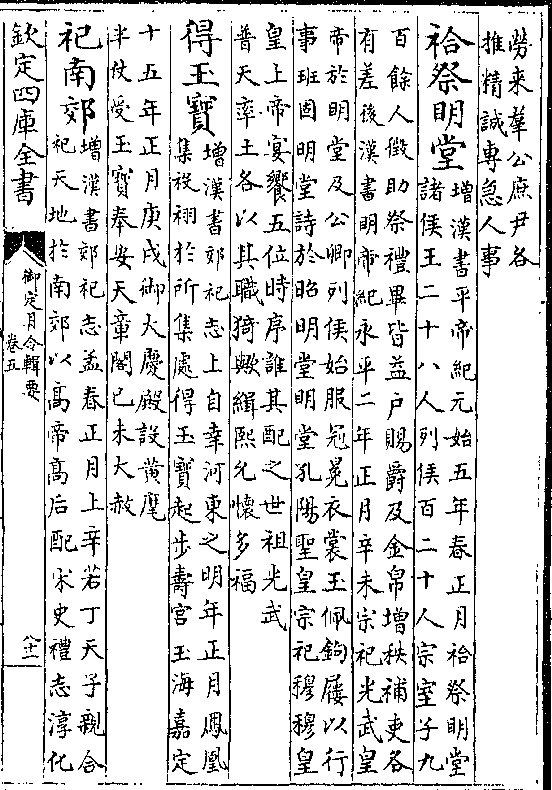 勞来羣公庶尹各
推精誠専急人事
祫祭明堂
增漢書平帝紀元始五年春正月祫祭明堂
諸侯王二十八人列侯百二十人宗室子九
百餘人徴助祭禮畢皆益户賜爵及金帛增秩補吏各
有差後漢書明帝紀永平二年正月辛未宗祀光武皇
帝於明堂及公卿列侯始服冠冕衣裳玉佩鉤屨以行
事班固明堂詩於昭明堂明堂孔陽聖皇宗祀穆穆皇
皇上帝宴饗五位時序誰其配之世祖光武
普天率土各以其職猗歟緝熙允懷多福
得玉寳
增漢書郊祀志上自幸河東之明年正月鳳凰
集祋祤於所集處得玉寳起步壽宫玉海嘉定
十五年正月庚戌御大慶殿設黄麾
半仗受玉寳奉安天章閣己未大赦
祀南郊
增漢書郊祀志孟春正月上辛若丁天子親合
祀天地於南郊以髙帝髙后配宋史禮志淳化
欽定四庫全書
御定月令輯要
卷五
八十一